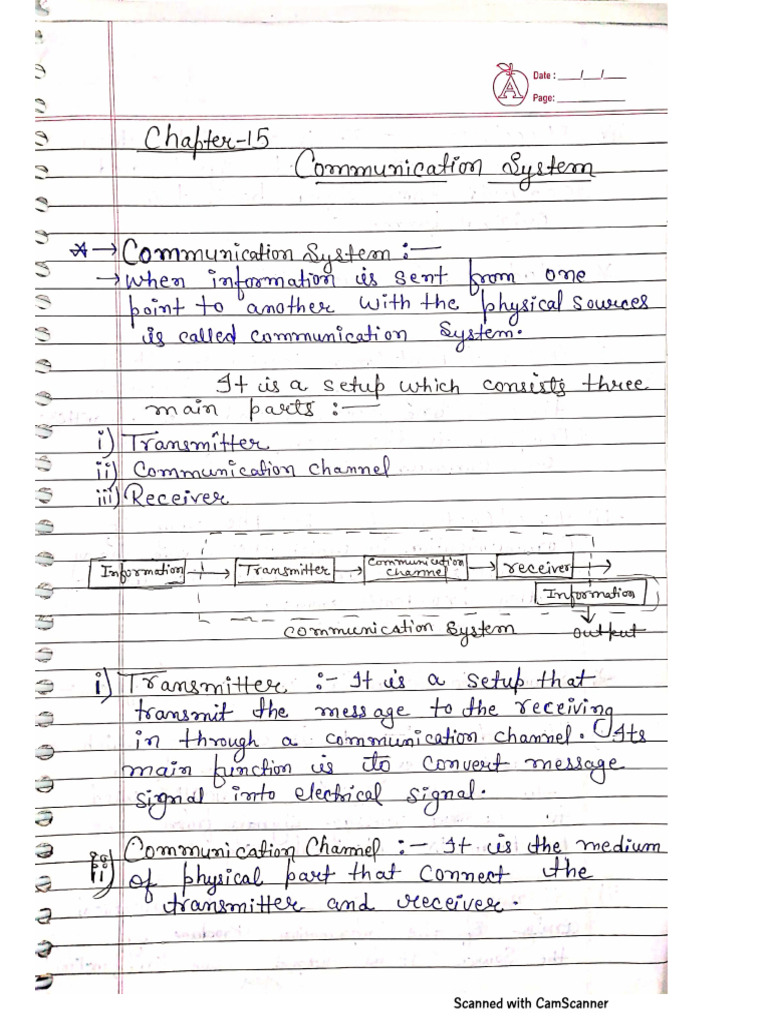 A
Date : ___/___/___
Page: ___________
Chapter-15
Communication System
* → Communication System :—
→ When information is sent from one
point to another with the physical sources
is called communication System.
It is a setup which consists three
main parts :—
i) Transmitter
ii) Communication channel
iii) Receiver
Information → Transmitter → Communication channel → receiver →
Information
Communication System output
i) Transmitter :- It is a setup that
transmit the message to the receiving
in through a communication channel. Its
main function is to convert message
signal into electrical signal.
ii) Communication Channel :- It is the medium
of physical part that connect the
transmitter and receiver.
Scanned with CamScanner